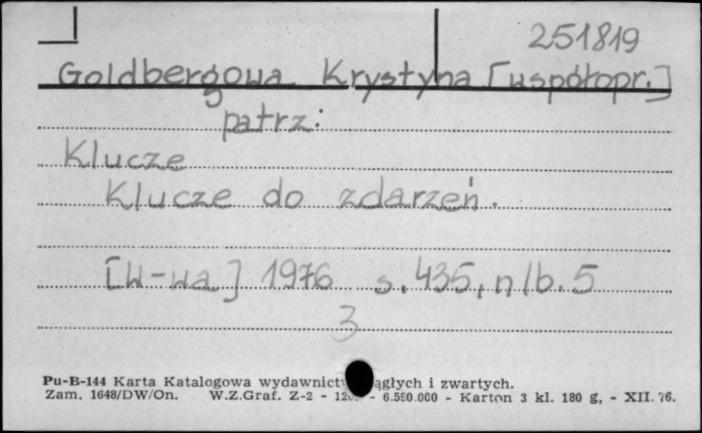 251819
Goldbergowa Krystyna [współopr.]
patrz:
Klucze
Klucze do zdarzeń.
[W-wa] 1976 s. 435, nlb. 5
3
Pu-B-144 Karta Katalogowa wydawnict ągłych i zwartych.
Zam. 1648/DW/On. W.Z.Graf. Z-2 - - 6.550.000 - Karton 3 kl. 180 g, - XII. 76.